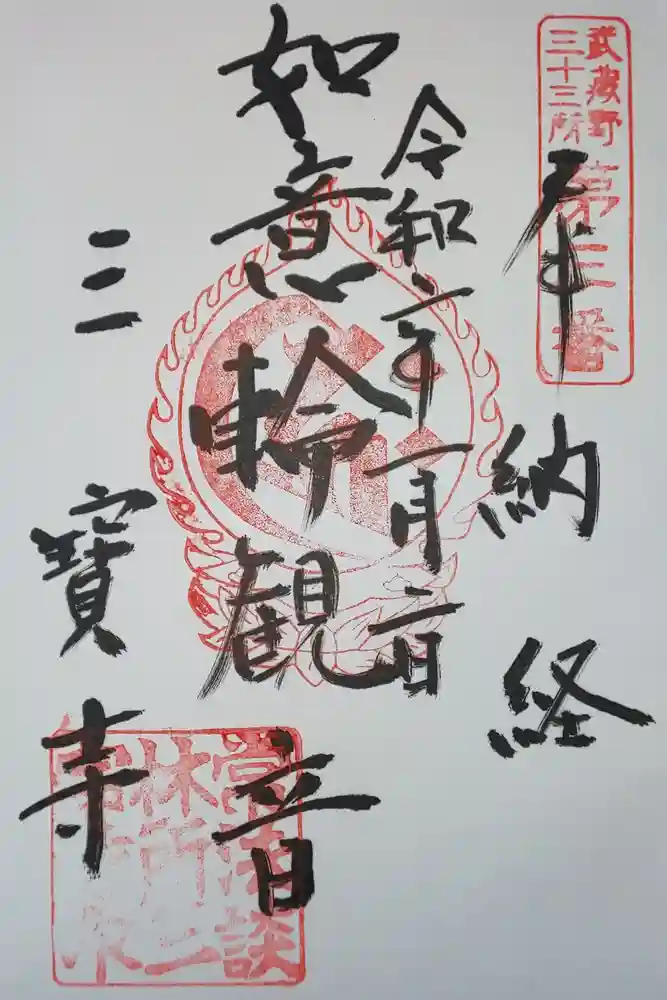 武蔵野
三十三所
第三番
奉納経
令和二年一月二日
如意輪観音
三寶寺
常法談
林所